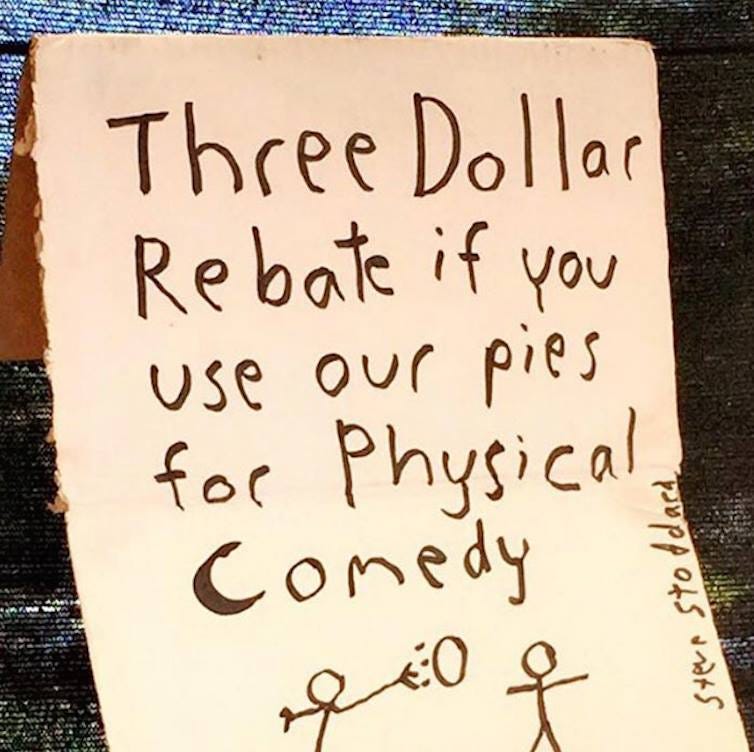 Three Dollar
Rebate if you
use our pies
for Physical
Comedy
Steve Stoddard